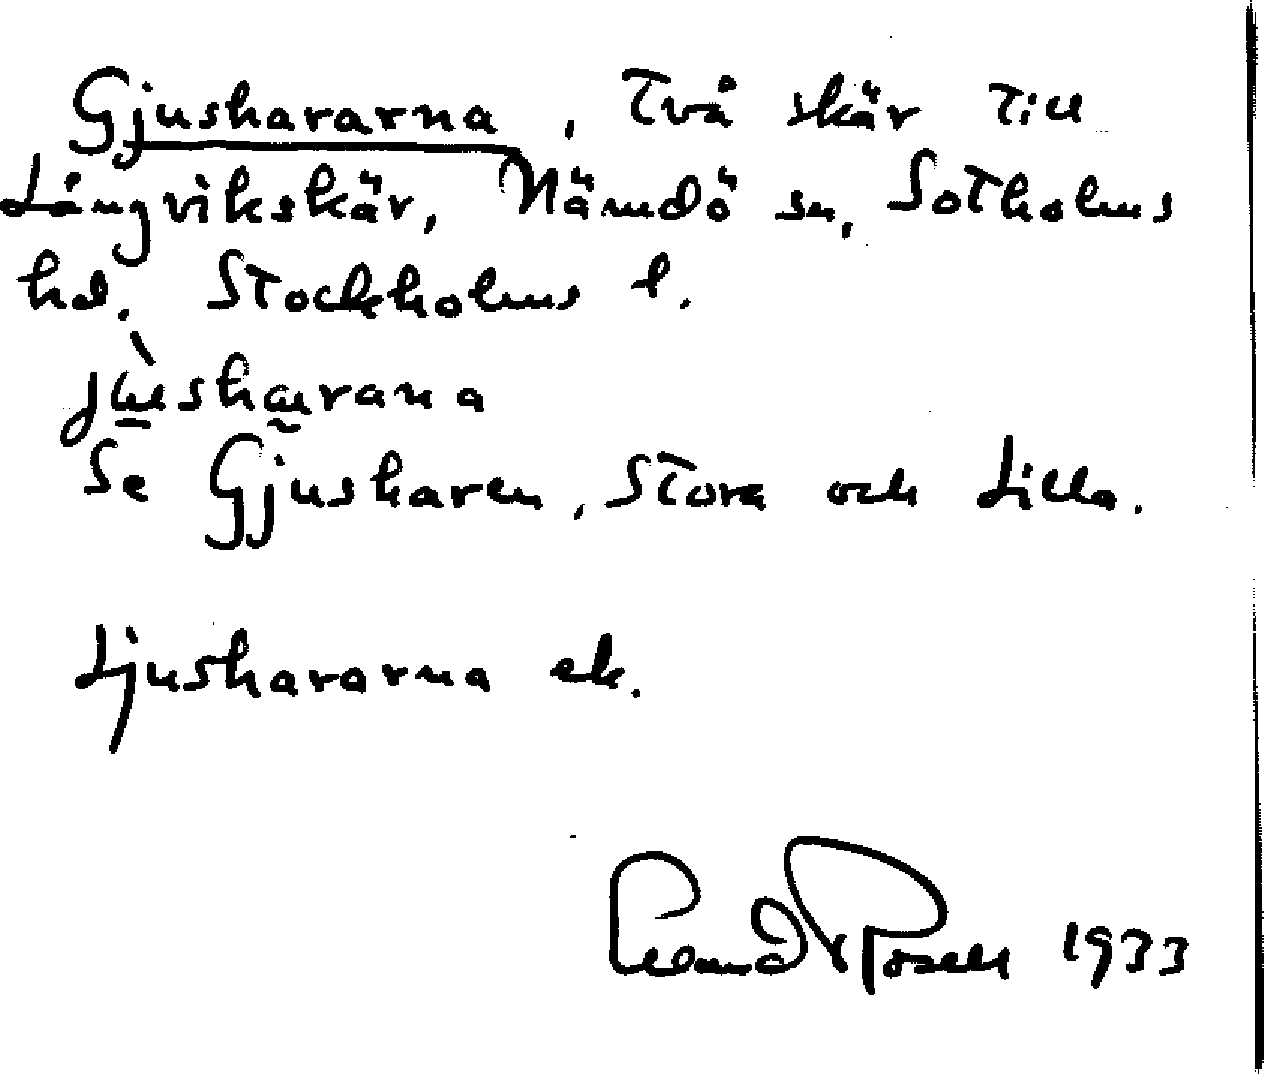 Gjushararna, Två skär till
Långvikskär, Nämdö sn, Sotholms
hd. Stockholms l.
jùsharana
Se Gjusharen, Stora och Lilla.
Ljushararna ek.
Rosell 1933